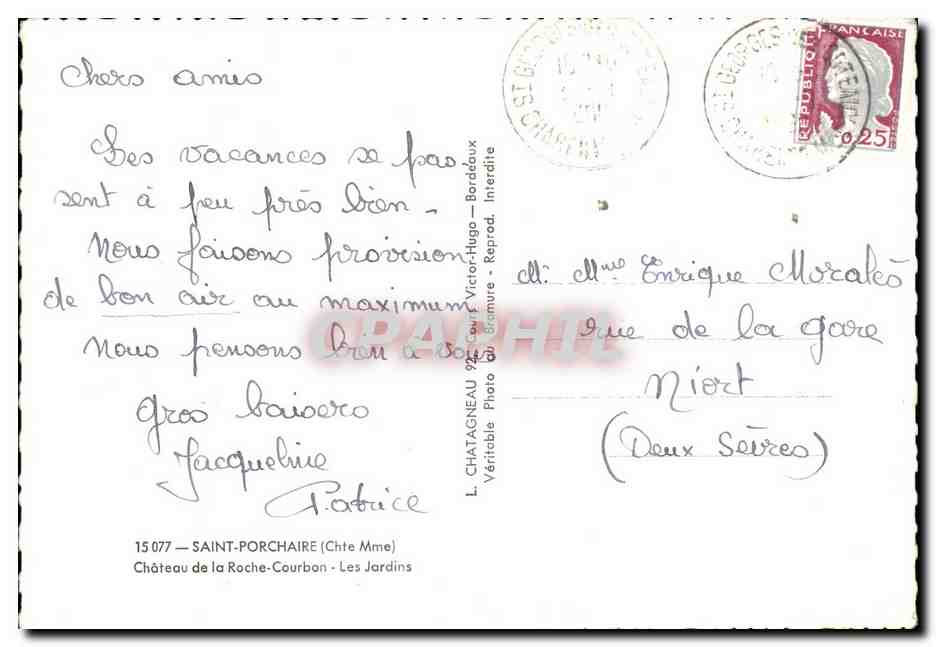 Chers amis
Les vacances se pas
sent à peu près bien -
Nous faisons provision
de bon air au maximum
Nous pensons bien à vous
Gros baisers
Jacqueline
Patrice
15 077 — SAINT-PORCHAIRE (Chte Mme)
Château de la Roche-Courbon - Les Jardins
L. CHATAGNEAU 92, Cours Victor-Hugo — Bordeaux
Véritable Photo au Bromure - Reprod. Interdite
RÉPUBLIQUE FRANÇAISE
0,25
M. Mme Enrique Moralès
rue de la gare
Niort
(Deux Sèvres)
CPAPHIL